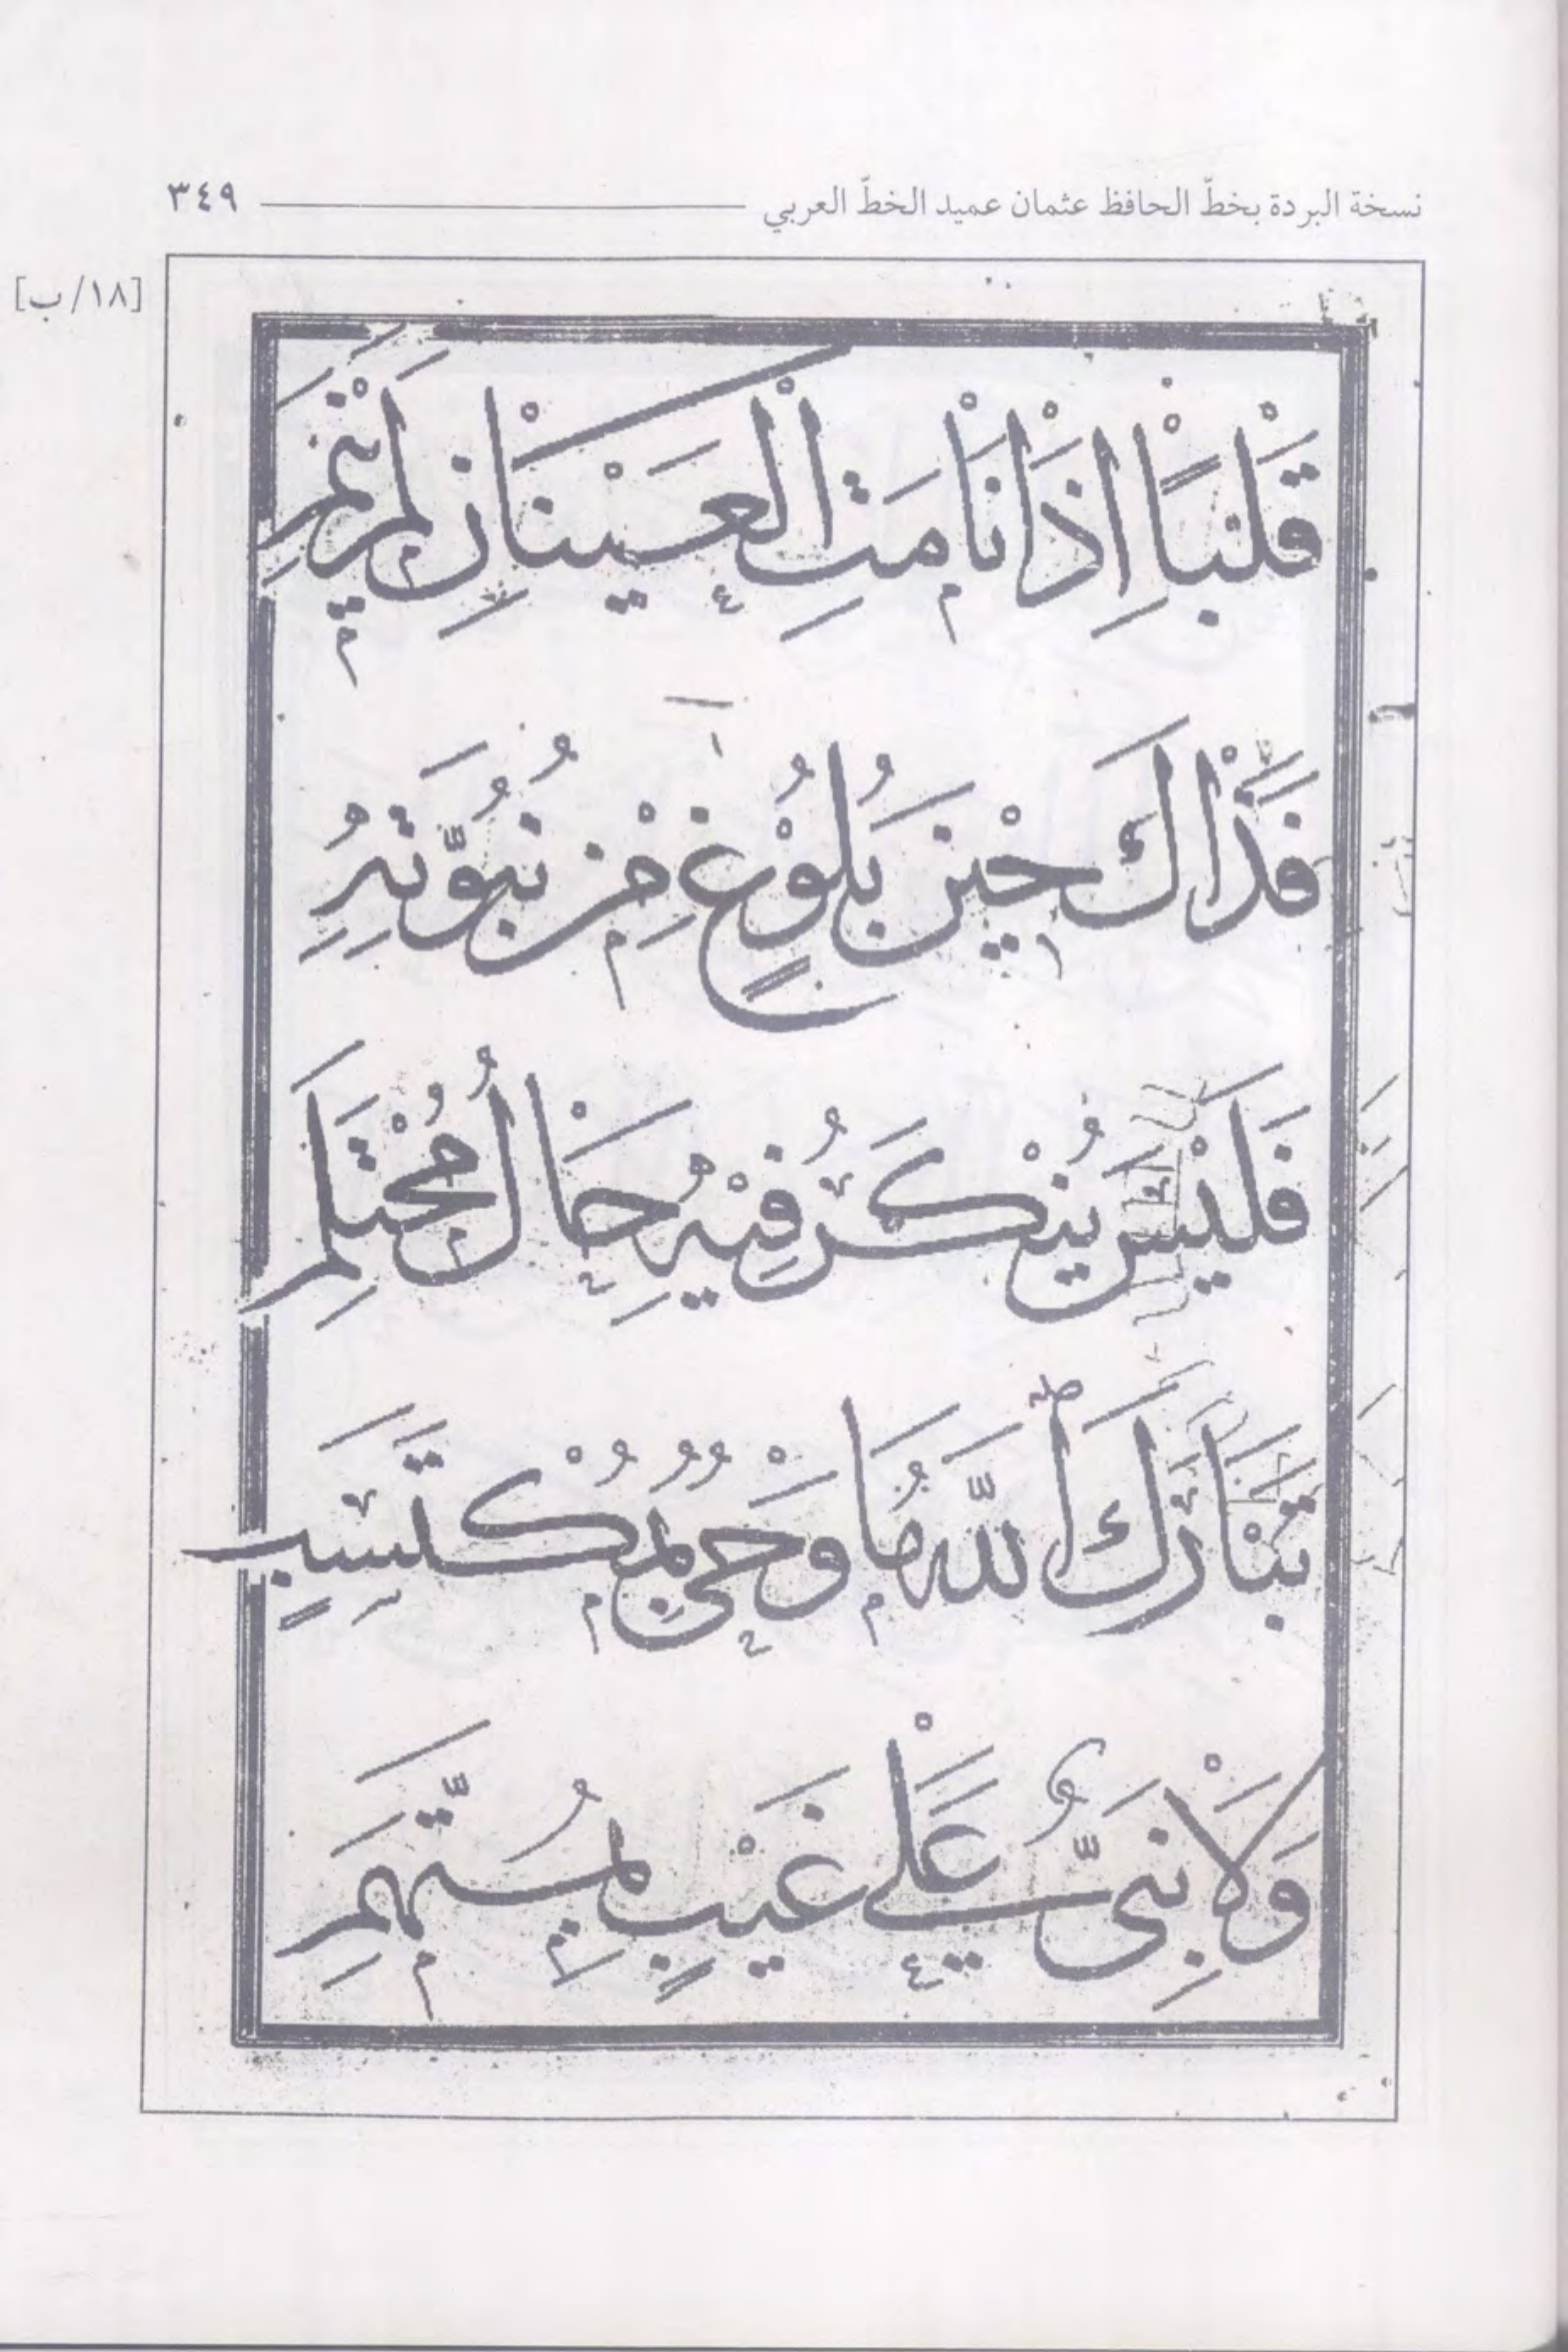 نسخة البردة بخطّ الحافظ عثمان عميد الخطّ العربي ٣٤٩
[١٨/ب]
قَلْبًا إِذَا نَامَتِ الْعَيْنَانِ لَمْ يَنَمِ
فَذَاكَ حِيْنَ بُلُوْغٍ مِنْ نُبُوَّتِهِ
فَلَيْسَ يُنْكَرُ فِيْهِ حَالُ مُحْتَلِمِ
تَبَارَكَ اللّٰهُ مَا وَحْيٌ بِمُكْتَسَبٍ
وَلَا نَبِيٌّ عَلٰى غَيْبٍ بِمُتَّهَمِ